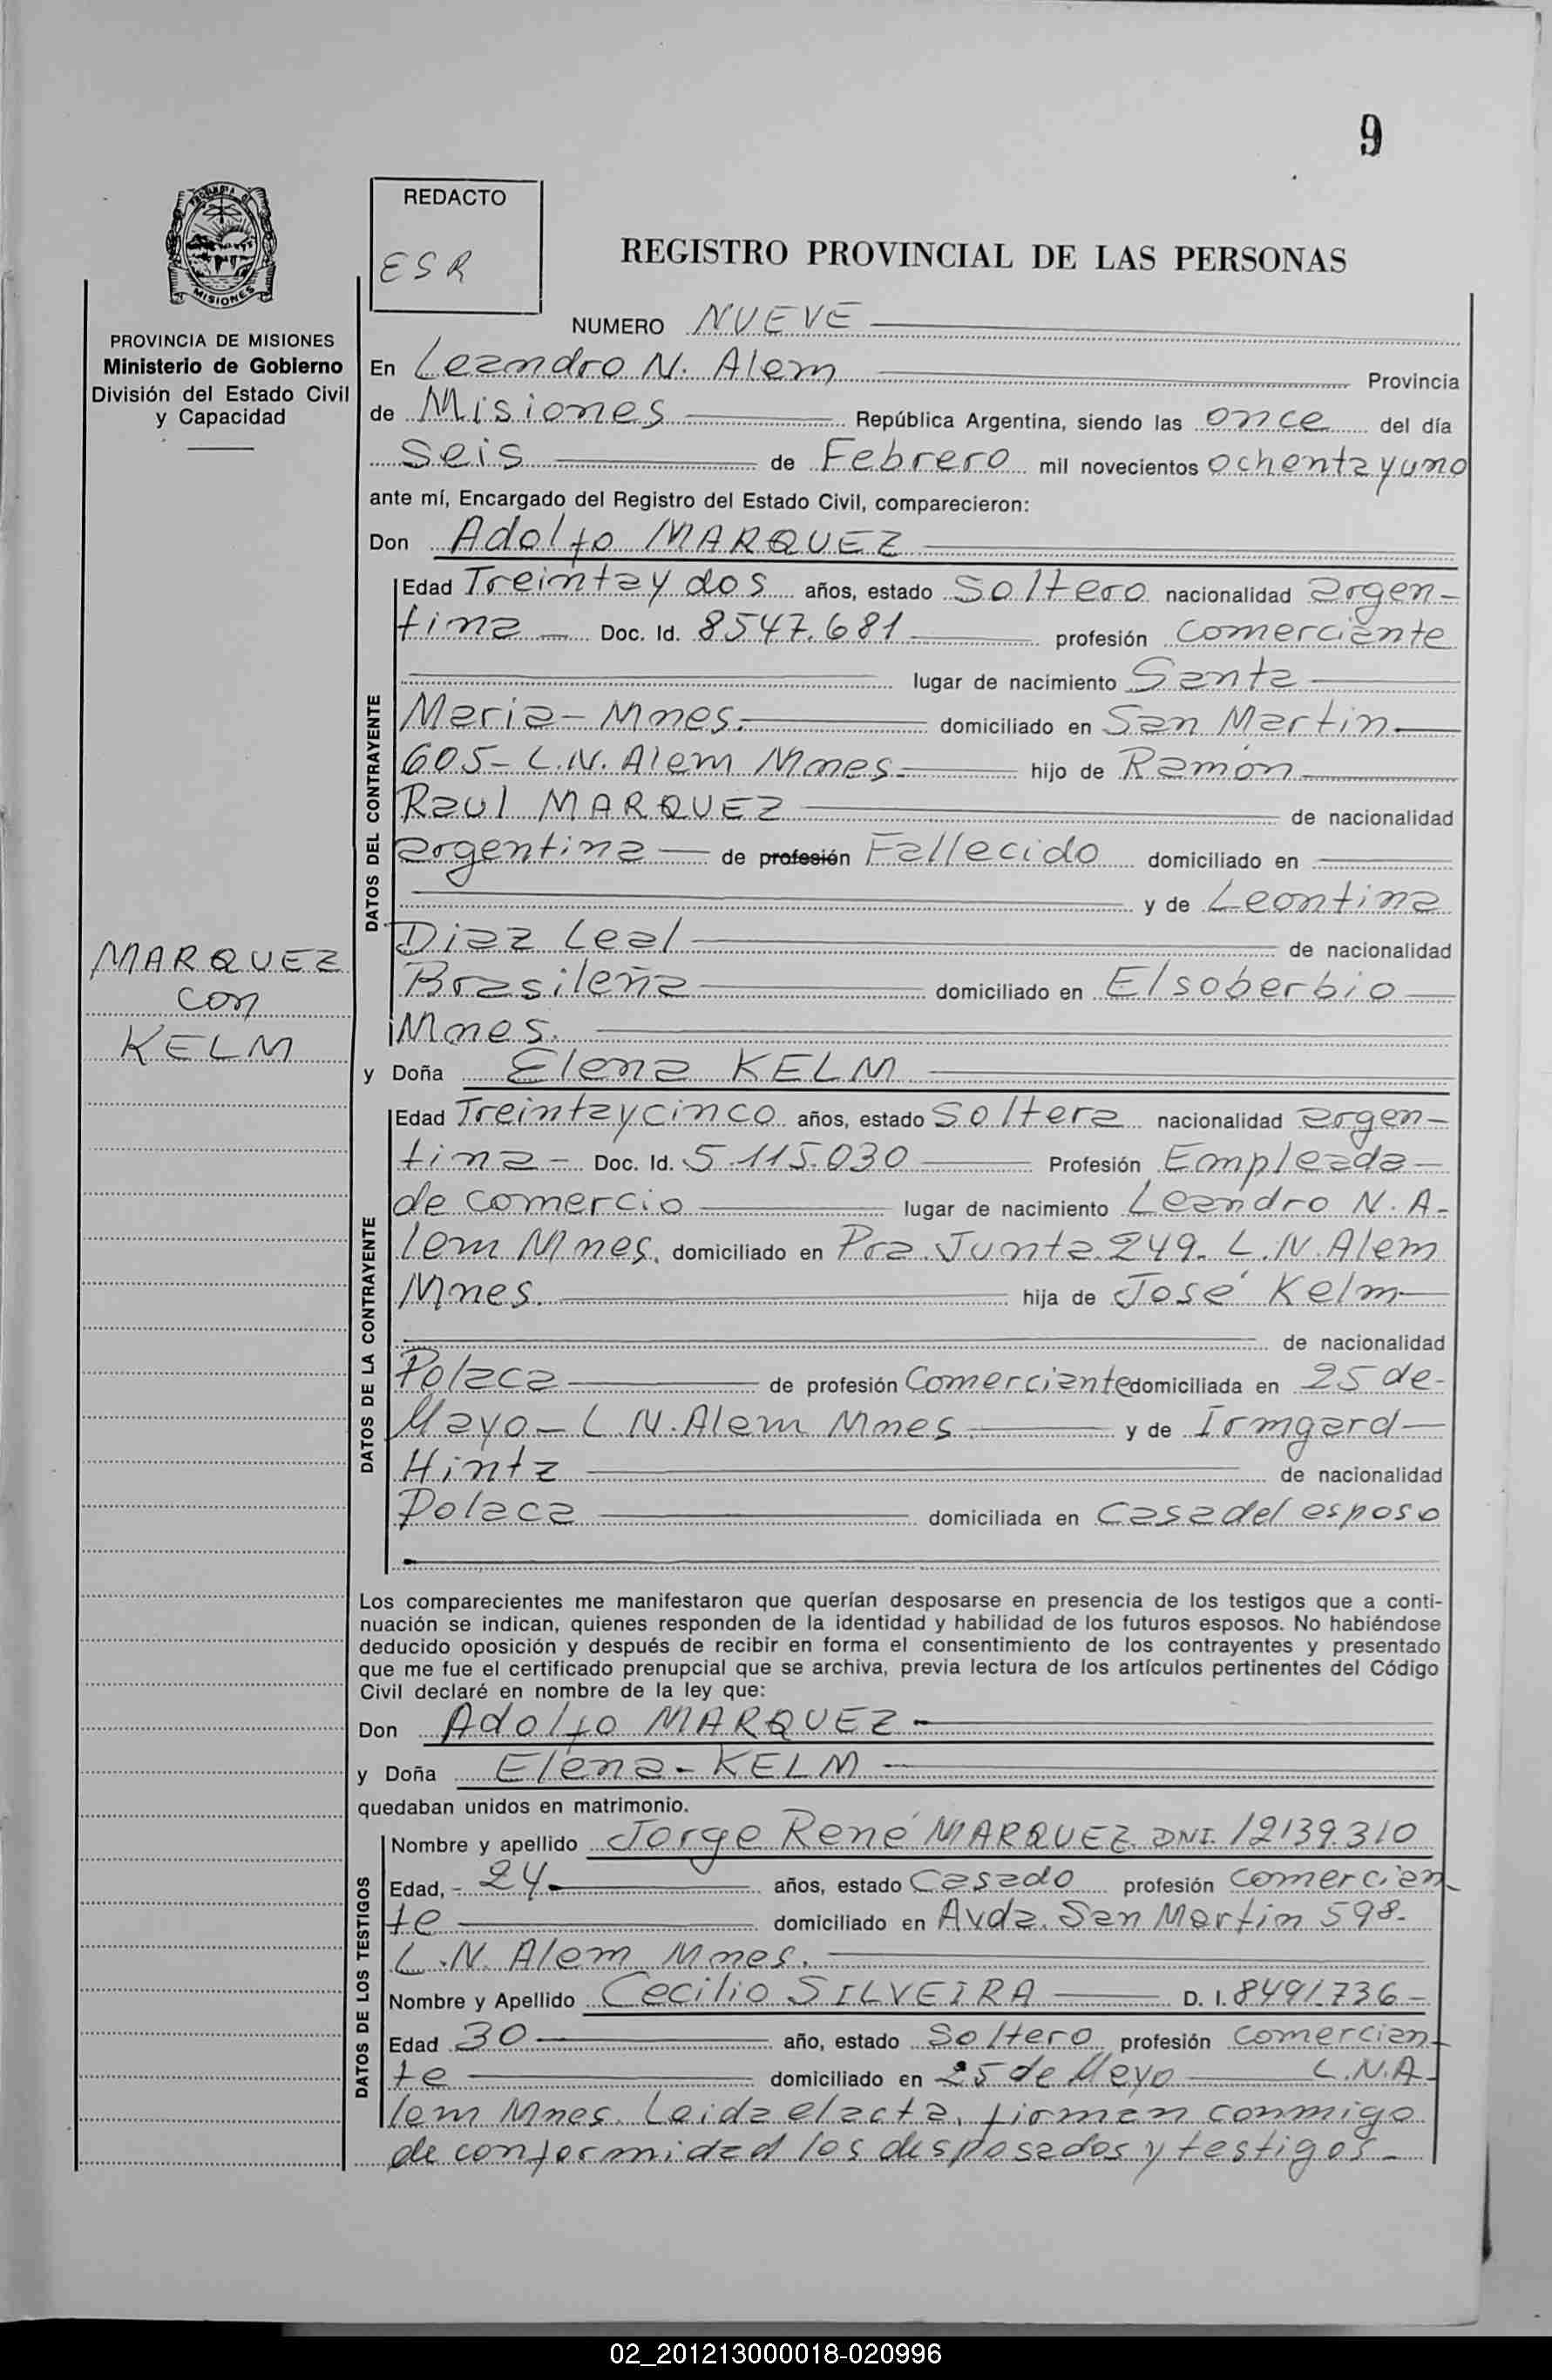 9
PROVINCIA DE
MISIONES
REDACTO
ESR
REGISTRO PROVINCIAL DE LAS PERSONAS
PROVINCIA DE MISIONES
Ministerio de Gobierno
División del Estado Civil
y Capacidad
MARQUEZ
con
KELM
NUMERO NUEVE
En Leandro N. Alem Provincia
de Misiones República Argentina, siendo las once del día
Seis de Febrero mil novecientos ochenta y uno
ante mí, Encargado del Registro del Estado Civil, comparecieron:
Don Adolfo MARQUEZ
DATOS DEL CONTRAYENTE
Edad Treinta y dos años, estado Soltero nacionalidad argen-
tina Doc. Id. 8547.681 profesión Comerciante
lugar de nacimiento Santa
Maria - Mnes. domiciliado en San Martin
605 - L.N. Alem Mnes. hijo de Ramón
Raul MARQUEZ de nacionalidad
argentina de profesión Fallecido domiciliado en
y de Leontina
Diaz Leal de nacionalidad
Brasileña domiciliado en El soberbio
Mnes.
y Doña Elena KELM
DATOS DE LA CONTRAYENTE
Edad Treinta y cinco años, estado Soltera nacionalidad argen-
tina - Doc. Id. 5.115.030 Profesión Empleada
de comercio lugar de nacimiento Leandro N. A-
lem Mnes. domiciliado en Pra. Junta 249. L.N. Alem
Mnes. hija de José Kelm
de nacionalidad
Polaca de profesión Comerciante domiciliada en 25 de
Mayo - L.N. Alem Mnes. y de Irmgard
Hintz de nacionalidad
Polaca domiciliada en Casa del esposo
Los comparecientes me manifestaron que querían desposarse en presencia de los testigos que a conti-
nuación se indican, quienes responden de la identidad y habilidad de los futuros esposos. No habiéndose
deducido oposición y después de recibir en forma el consentimiento de los contrayentes y presentado
que me fue el certificado prenupcial que se archiva, previa lectura de los artículos pertinentes del Código
Civil declaré en nombre de la ley que:
Don Adolfo MARQUEZ
y Doña Elena - KELM
quedaban unidos en matrimonio.
DATOS DE LOS TESTIGOS
Nombre y apellido Jorge René MARQUEZ DNI. 12139.310
Edad, - 24 años, estado Casado profesión comercian
te domiciliado en Avda. San Martin 598.
L.N. Alem Mnes.
Nombre y Apellido Cecilio SILVEIRA D. I. 8491.736 -
Edad 30 año, estado Soltero profesión comercian
te domiciliado en 25 de Mayo L.N.A
lem Mnes. Leida el acta, firman conmigo
de conformidad los desposados y testigos -
02_201213000018-020996